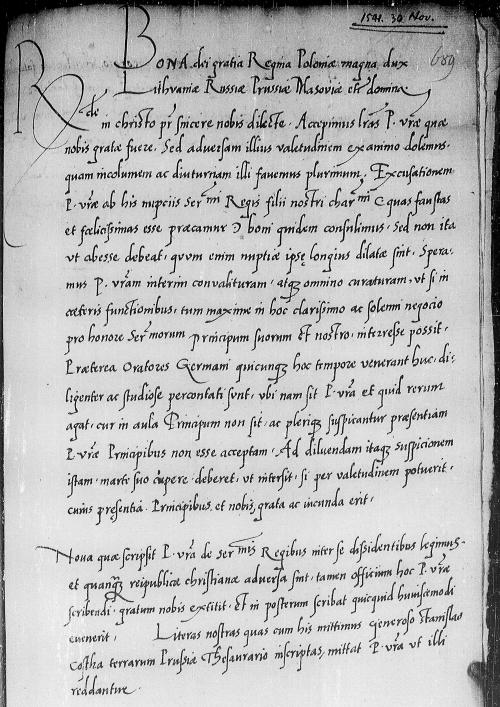 1541. 30 Nov.
689
BONA dei gratia Regina Poloniæ magna dux
Lithvaniæ Russiæ Prussiæ Masoviæ etc domina
Rde
in christo pr sincere nobis dilecte. Accepimus lras P. vræ quæ
nobis gratæ fuere. Sed adversam illius valetudinem ex animo dolemus.
quam incolumem ac diuturnam illi favemus plurimum. Excusationem
P. vræ ab his nuptiis Ser mi Regis filii nostri char mi (quas faustas
et fœlicissimas esse præcamur) boni quidem consulimus, Sed non ita
vt abesse debeat, quum enim nuptiæ ipsę longius dilatæ sint, Spera-
mus P. vram interim convalituram, atqz omnino curaturam, vt si in
cæteris functionibus, tum maxime in hoc clarissimo ac solemni negocio
pro honore Ser morum principum suorum et nostro, interesse possit.
Præterea Oratores Germani quicunqz hoc tempore venerant huc, di-
ligenter ac studiose percontati sunt, vbi nam sit P. vra et quid rerum
agat, cur in aula Principum non sit, ac pleriqz suspicantur præsentiam
P. vræ Principibus non esse acceptam. Ad diluendam itaqz suspicionem
istam, marte suo cupere deberet, vt intersit, si per valetudinem potuerit,
cuius presentia Principibus et nobis grata ac iucunda erit.
Nova quæ scripsit P. vra de Ser mis Regibus inter se dissidentibus legimus.
et quanqz reipublicæ christianæ adversa sint, tamen officium hoc P. vræ
scribendi, gratum nobis extitit. Et in posterum scribat quicquid huiuscemodi
evenerit, Literas nostras quas cum his mittimus generoso Stanislao
Costha terrarum Prussiæ Thesaurario inscriptas, mittat P. vra vt illi
reddantur.